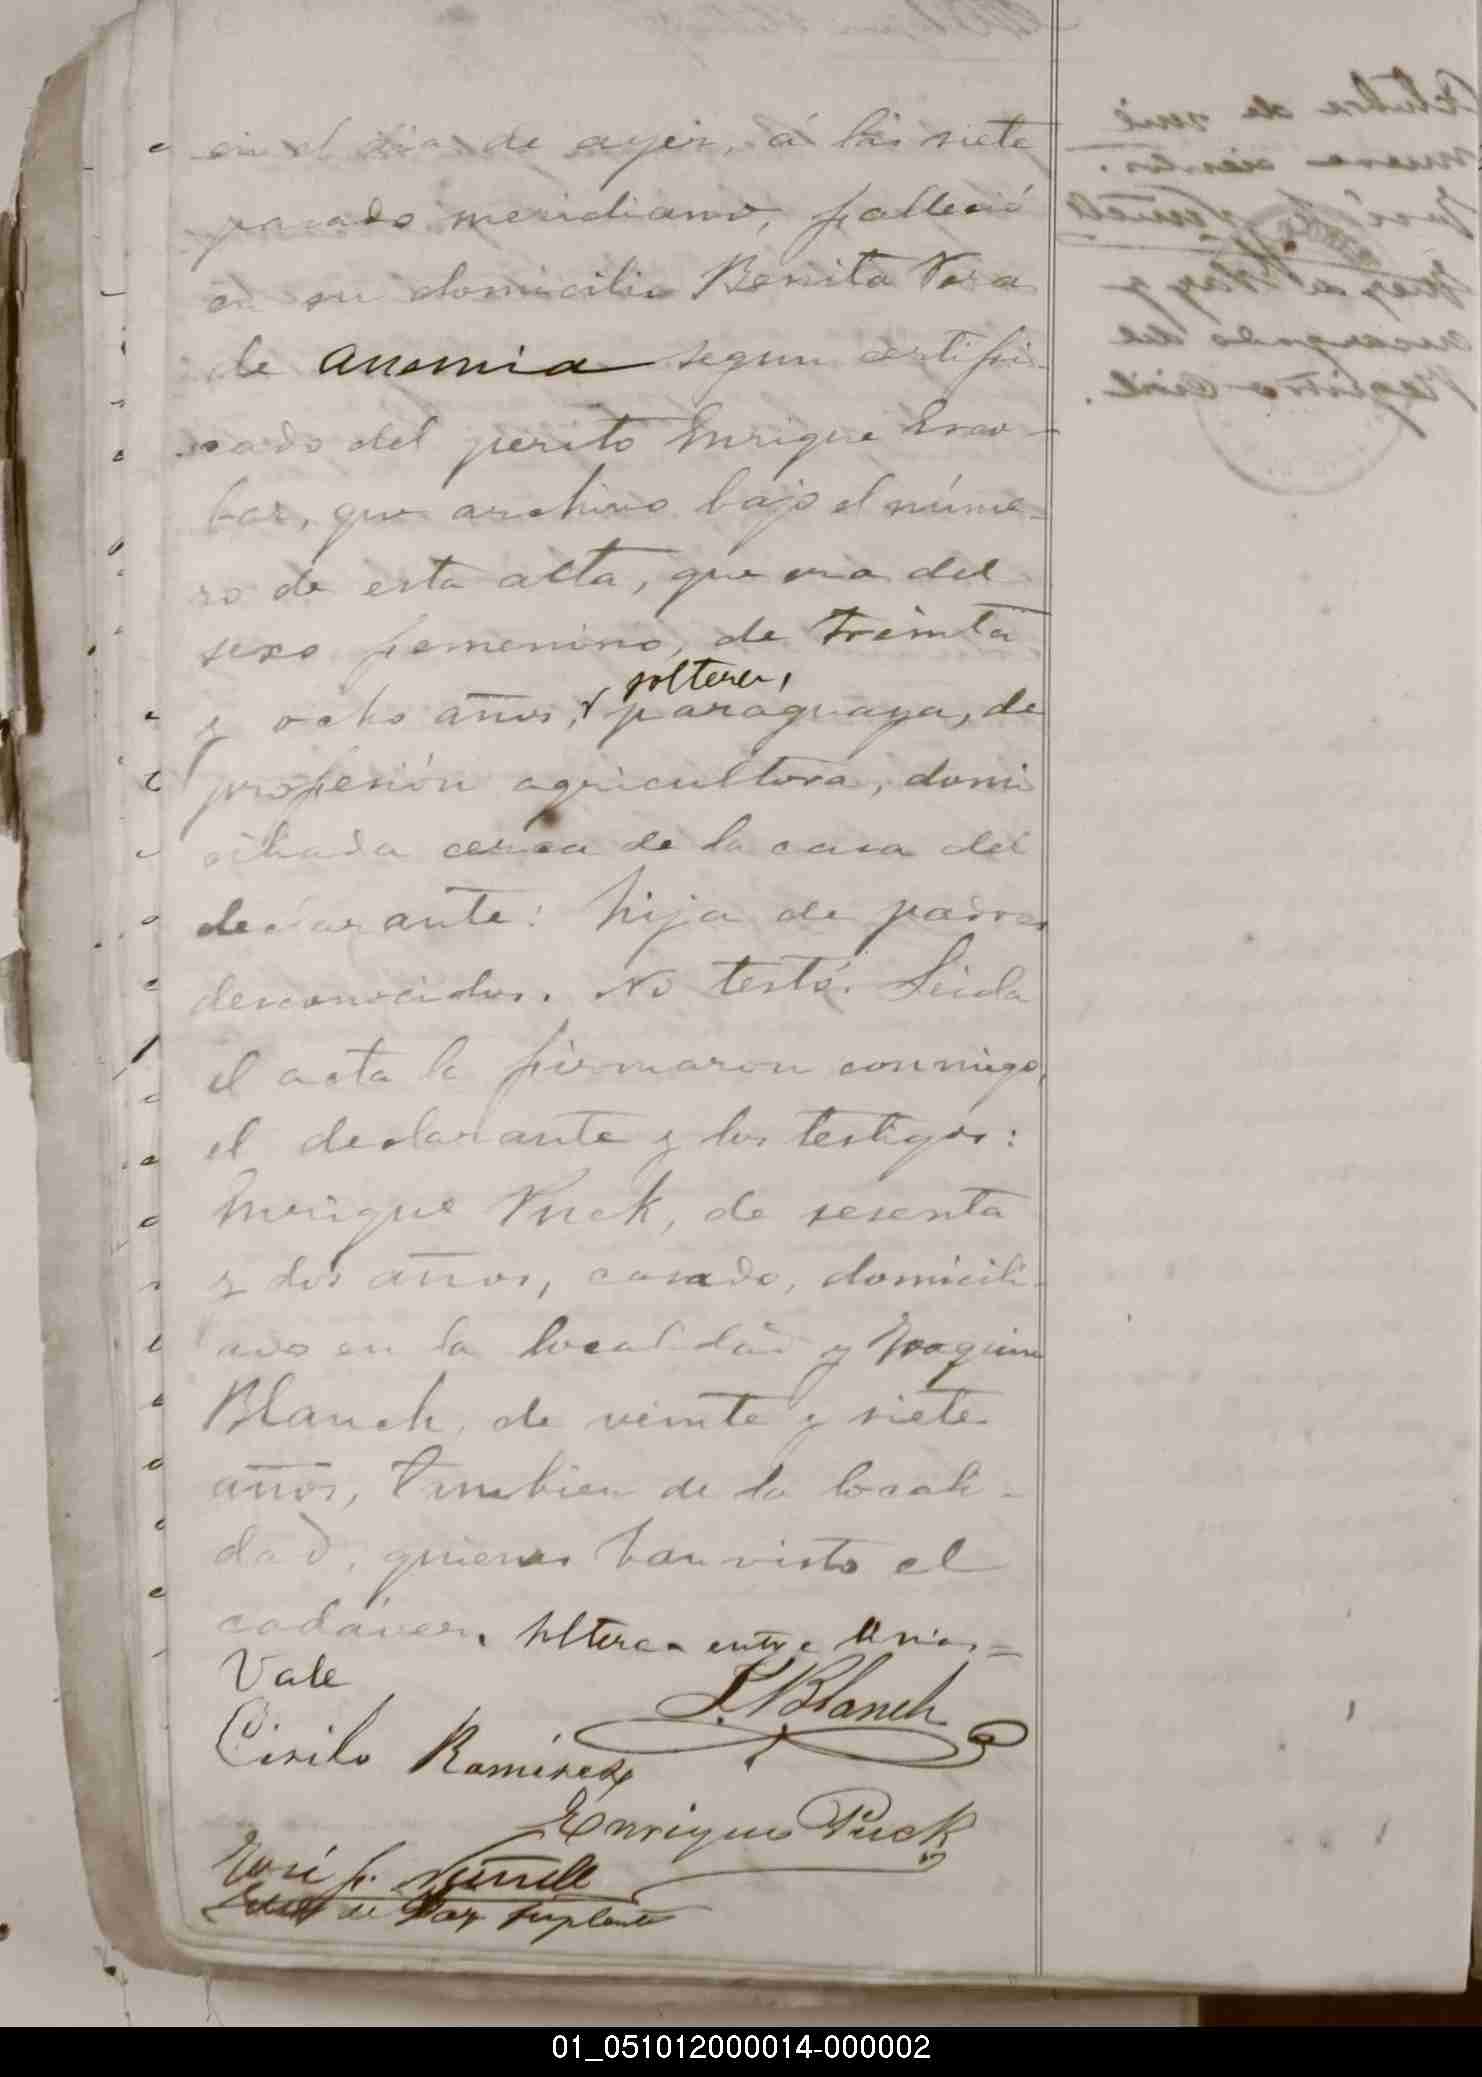 en el dia de ayer, á las siete
pasado meridiano, falleció
en su domicilio Benita Vera
de anemia segun certifi-
cado del perito Enrique Esco-
bar, que archivo bajo el núme-
ro de esta acta, que era del
sexo femenino, de treinta
soltera,
y ocho años, paraguaya, de
profesión agricultora, domi
ciliada cerca de la casa del
declarante: hija de padres
desconocidos. No testó. Leida
el acta la firmaron conmigo,
el declarante y los testigos:
Enrique Puck, de sesenta
y dos años, casado, domicili-
ado en la localidad y Joaquin
Blanch, de veinte y siete
años, tambien de la locali-
dad, quienes han visto el
cadáver. soltera entre lineas=
Vale
J. Blanch
Cirilo Ramírez
Enrique Puck
José
Juez de Paz Suplente
Octubre de mil
nueve cientos.
José
Juez de Paz y
encargado del
Registro Civil.
01_051012000014-000002